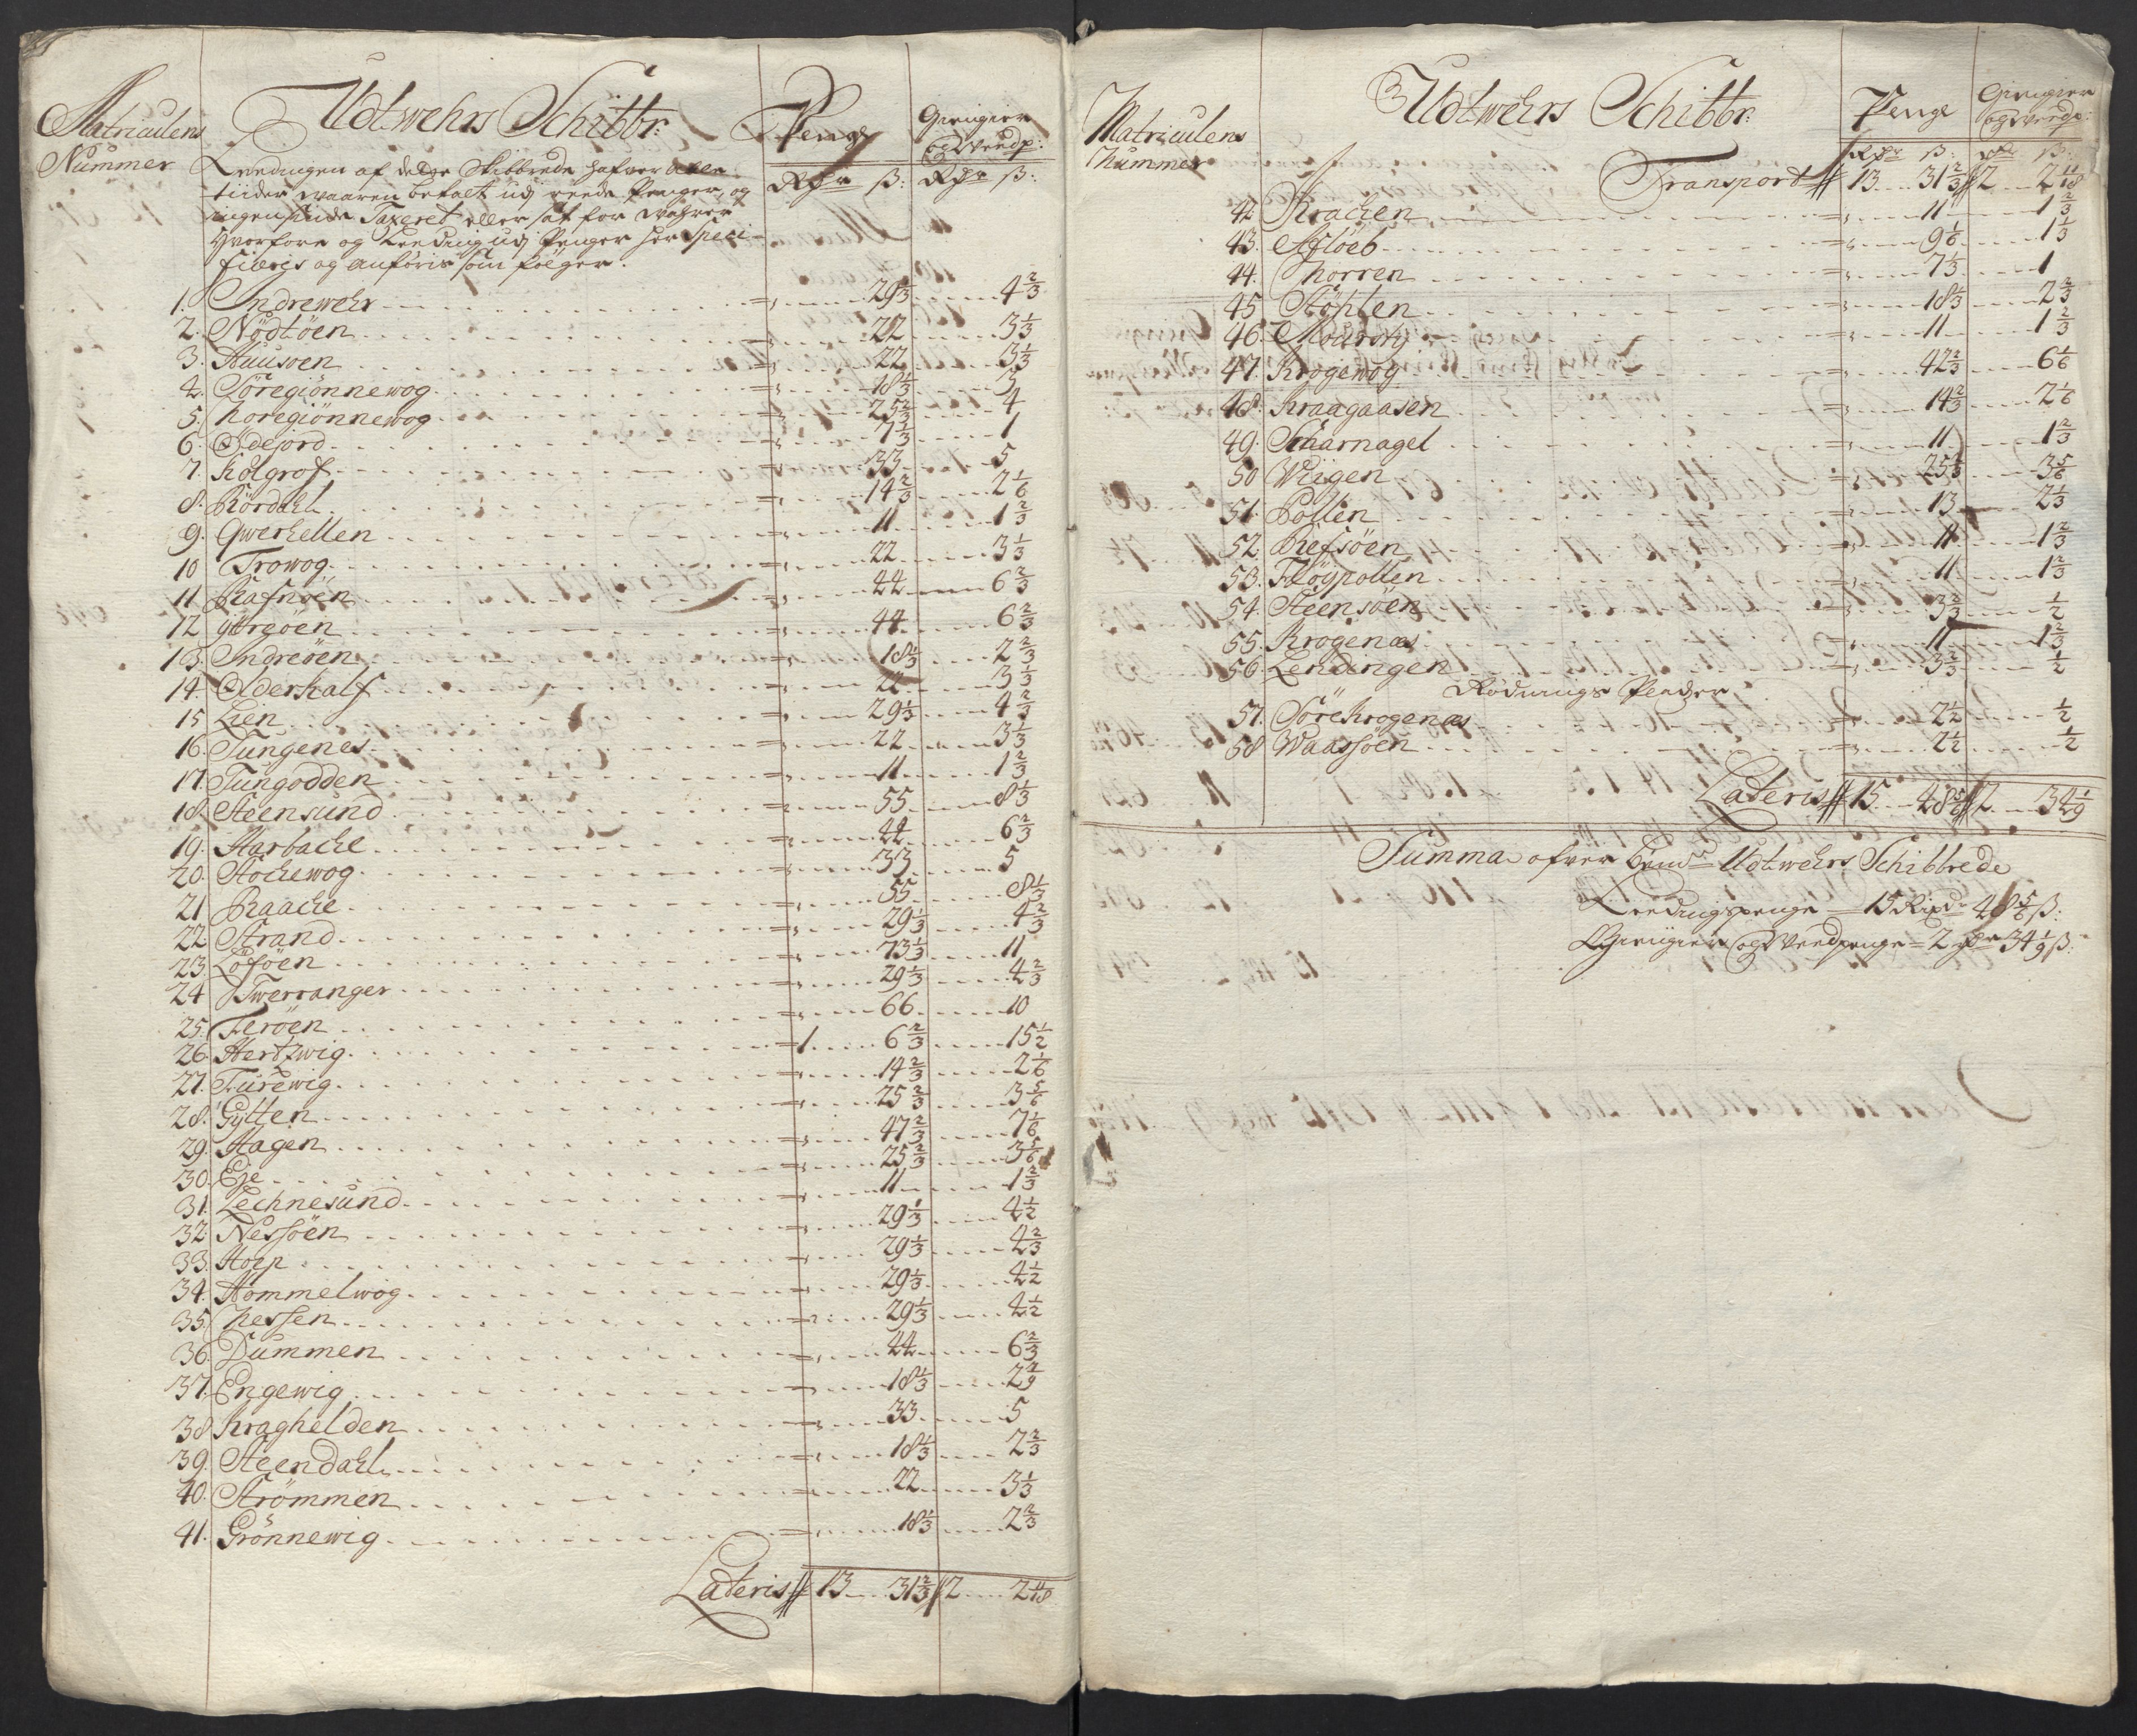 Matriculens
Nummer
Udtwehrs Schibbr:
Penge
Giengier
og Wredp:
Leedingen af dette Skibbrede hafver altii-
tiider waaren betalt udj reede Penger, og
ingensinde Taxeret eller sat for Wahrer
Hvorfore og Leeding udj Penger her speci-
ficeris og anføris som følger.
Rdr ß: Rdr ß:
1. Indrewehr 29 1/3 4 2/3
2. Nödtöen 22 3 1/3
3. Huusoen 22 3 1/3
4. Söregiönnewog 18 1/3 3
5. Noregiönnewog 25 2/3 4
6. Ödejord 7 1/3 1
7. Kolgrof 33 5
8. Rördahl 14 2/3 2 1/6
9. Qwerhellen 11 1 2/3
10 Trowog 22 3 1/3
11 Rafnöen 44 6 2/3
12 yttreöen 44 6 2/3
13. Indreöen 18 1/3 2 2/3
14 Olderkalf 22 3 1/3
15 Lien 29 1/3 4 2/3
16. Tungenes 22 3 1/3
17. Tungodden 11 1 2/3
18. Steensund 55 8 1/3
19. Harbache 44 6 2/3
20. Stochewog 33 5
21 Raache 55 8 1/3
22 Strand 29 1/3 4 2/3
23. Löföen 73 1/3 11
24 Twerranger 29 1/3 4 2/3
25. Feröen 66 10
26. Hertzwig 1 6 2/3 15 1/2
27. Turewig 14 2/3 2 1/6
28. Gylten 25 2/3 3 5/6
29. Hagen 47 2/3 7 1/6
30. Eje 25 2/3 3 5/6
31. Lechnesund 11 1 2/3
32. Nessöen 29 1/3 4 1/2
33. Horp 29 1/3 4 2/3
34. Hommelwog 29 1/3 4 1/2
35. Nessen 29 1/3 4 1/2
36. Dummen 44 6 2/3
37. Engewig 18 1/3 2 2/9
38 Kraghelden 33 5
39. Steendahl 18 1/3 2 2/3
40. Strömmen 22 3 1/3
41. Grönnewig 18 1/3 2 2/3
Lateris 13 31 2/3 2 2 11/18
Matriculens
Nummer
Udtwehrs Schibbr:
Penge
Giengier
og Wredp:
Rdr ß: Rdr ß:
Transport 13 31 2/3 2 2 11/18
42 Krachen 11 1 2/3
43. Aflöeb 9 1/6 1 1/3
44. Norren 7 1/3 1
45 Stöhlen 18 1/3 2 2/3
46. 11 1 2/3
47. Krogewog 42 2/3 6 1/6
48. Kraagaasen 14 2/3 2 1/6
49. Scharnagel 11 1 2/3
50 Wiigen 25 2/3 3 5/6
51. Pollen 13 2 1/3
52. Refsöen 11 1 2/3
53. Flöypollen 11 1 2/3
54. Steensöen 3 2/3 1/2
55. Krogenæs 11 1 2/3
56. Lendingen 3 2/3 1/2
Rödnings Pladser
57. Sörekrogenæs 2 1/2 1/2
58 Waassöen 2 1/2 1/2
Lateris 15 48 5/6 2 34 1/9
Summa ofver bemte Udtwehrs Schibbrede
Leedingspenge = 15 Rixdr 48 5/6 ß:
Giengier og Wredpenge = 2 Rdr 34 1/9 ß: